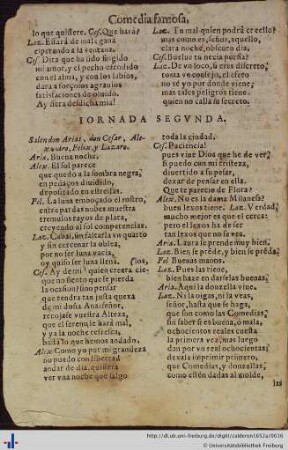 Comedia famosa.
lo que quisiere. Ces. Que harà?
Laz. Estarà de mala gana
esperando a la ventana.
Ces. Dirà que ha sido fingido
mi amor, y el pecho
con el alma, y con los labios,
darà a forçosos agravios
satisfaciones de olvido.
Ay fiera desdicha mia!
Laz. Tu mal quien podrà creello?
mas como es, señor, aquello,
clara noche, obscuro dia,
Ces. Buelue tu necia porfia?
Laz. De vo loco, si eres discreto,
toma vn consejo, el efeto
no sè yo por donde viene;
mas tales peligros tiene
quien no calla su secreto.
IORNADA SEGVNDA.
Salen don Arias, don Cesar, Ale-
xandro, Felix, y Lazaro.
Aria. Buena noche.
Alex. El Sol parece
que quedò a la sombra negra,
en pedaços diuidido,
depositado en estrellas.
Fel. La luna emboçado el rostro,
entre pardas nubes muestra
tremulos rayos de plata,
creyendo al sol competencias.
Laz. Cabal, sin faltarla vn quarto
y sin cercenar la oblea,
por no ser luna vacia,
oy quiso ser luna llena.
Ces. Ay de mi! quien creerà cie-
que no siento que se pierda
la ocasion! sino pensar
que tendrà tan justa quexa
de mi doña Ana. Señor,
recojase vuestra Alteza,
que el sereno le harà mal,
y ya la noche refresca,
harto lo que hemos andado.
Alex. Como yo por mi grandeza
no puedo con libertad
andar de dia, quisiera
ver vna noche que salgo
toda la ciudad.
Ces. Paciencia!
pues viue Dios que he de ver
si puedo con mi tristeza,
diuertido a su pesar,
dexar de pensar en ella.
Que te parecio de Flora?
Alex. No es la dama Milanesa?
buen lexos tiene. Laz. Verdad,
mucho mejor es que el cerca:
pero ella no ha de ser
tan lexos que no se vea.
Aria. Laura se prende muy bien.
Laz. Bien se prède, y bien se prèda.
Fel. Buenas manos.
Laz. Pues las tiene,
bien haze en darselas buenas.
Aria. Aqui la donzella viue.
Laz. Ni la oigas, ni la veas,
señor, hasta que se haga,
que son como las Comedias,
sin saber si es buena, ò mala,
ochocientos reales cuesta
la primera vez, mas luego
dan por vn real ochocientas;
dexala imprimir primero,
que Comedias, y donzellas,
como estèn dadas al molde,
las
http://dl.ub.uni-freiburg.de/diglit/calderon1652a/0016
© Universitätsbibliothek Freiburg